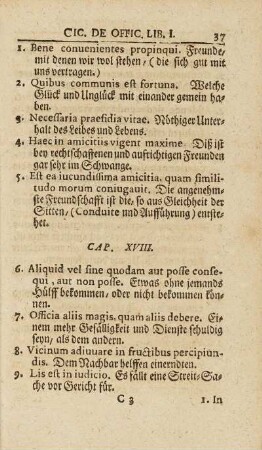 CIC. DE OFFIC. LIB. I. 37
1. Bene conuenientes propinqui. Freunde,
mit denen wir wol stehen, (die sich gut mit
uns vertragen.)
2. Quibus communis est fortuna. Welche
Glück und Unglück mit einander gemein ha-
ben.
3. Necessaria praesidia vitae. Nöthiger Unter-
halt des Leibes und Lebens.
4. Haec in amicitiis vigent maxime. Diß ist
bey rechtschaffenen und aufrichtigen Freunden
gar sehr im Schwange.
5. Est ea iucundissima amicitia, quam simili-
tudo morum coniugauit. Die angenehm-
ste Freundschafft ist die, so aus Gleichheit der
Sitten, (Conduite und Aufführung) entste-
het.
CAP. XVIII.
6. Aliquid vel sine quodam aut posse conse-
qui, aut non posse. Etwas ohne jemands
Hülff bekommen, oder nicht bekommen kön-
nen.
7. Officia aliis magis, quam aliis debere. Ei-
nem mehr Gefälligkeit und Dienste schuldig
seyn, als dem andern.
8. Vicinum adiuuare in fructibus percipiun-
dis. Dem Nachbar helffen einernden.
9. Lis est in iudicio. Es fällt eine Streit-Sa-
che vor Gericht für.
C 3 1. In